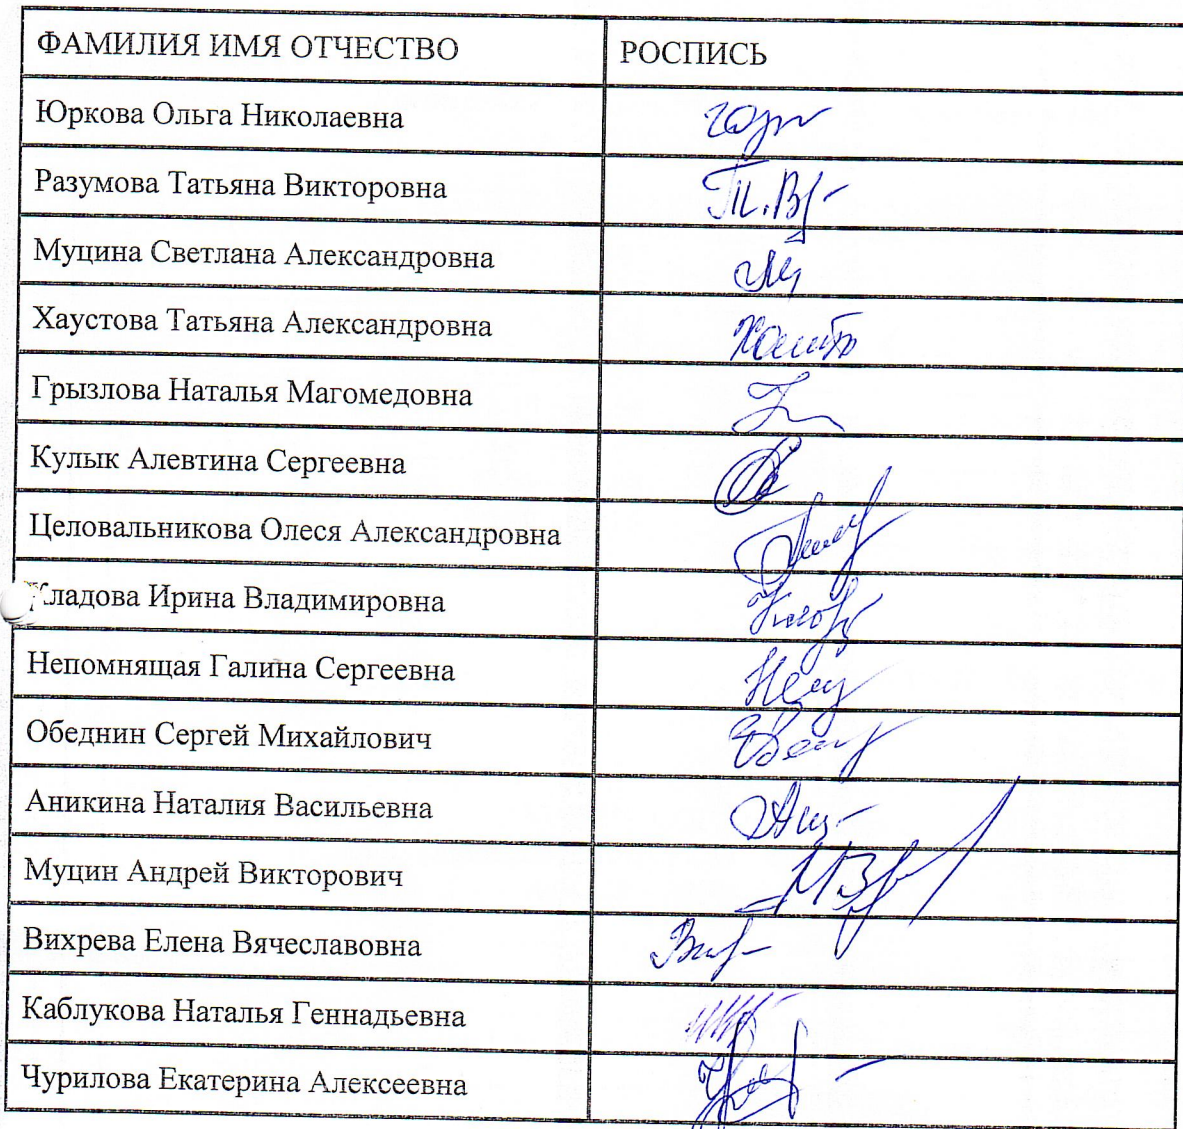 ФАМИЛИЯ ИМЯ ОТЧЕСТВО РОСПИСЬ
Юркова Ольга Николаевна
Разумова Татьяна Викторовна
Муцина Светлана Александровна
Хаустова Татьяна Александровна
Грызлова Наталья Магомедовна
Кулык Алевтина Сергеевна
Целовальникова Олеся Александровна
Кладова Ирина Владимировна
Непомнящая Галина Сергеевна
Обеднин Сергей Михайлович
Аникина Наталия Васильевна
Муцин Андрей Викторович
Вихрева Елена Вячеславовна
Каблукова Наталья Геннадьевна
Чурилова Екатерина Алексеевна